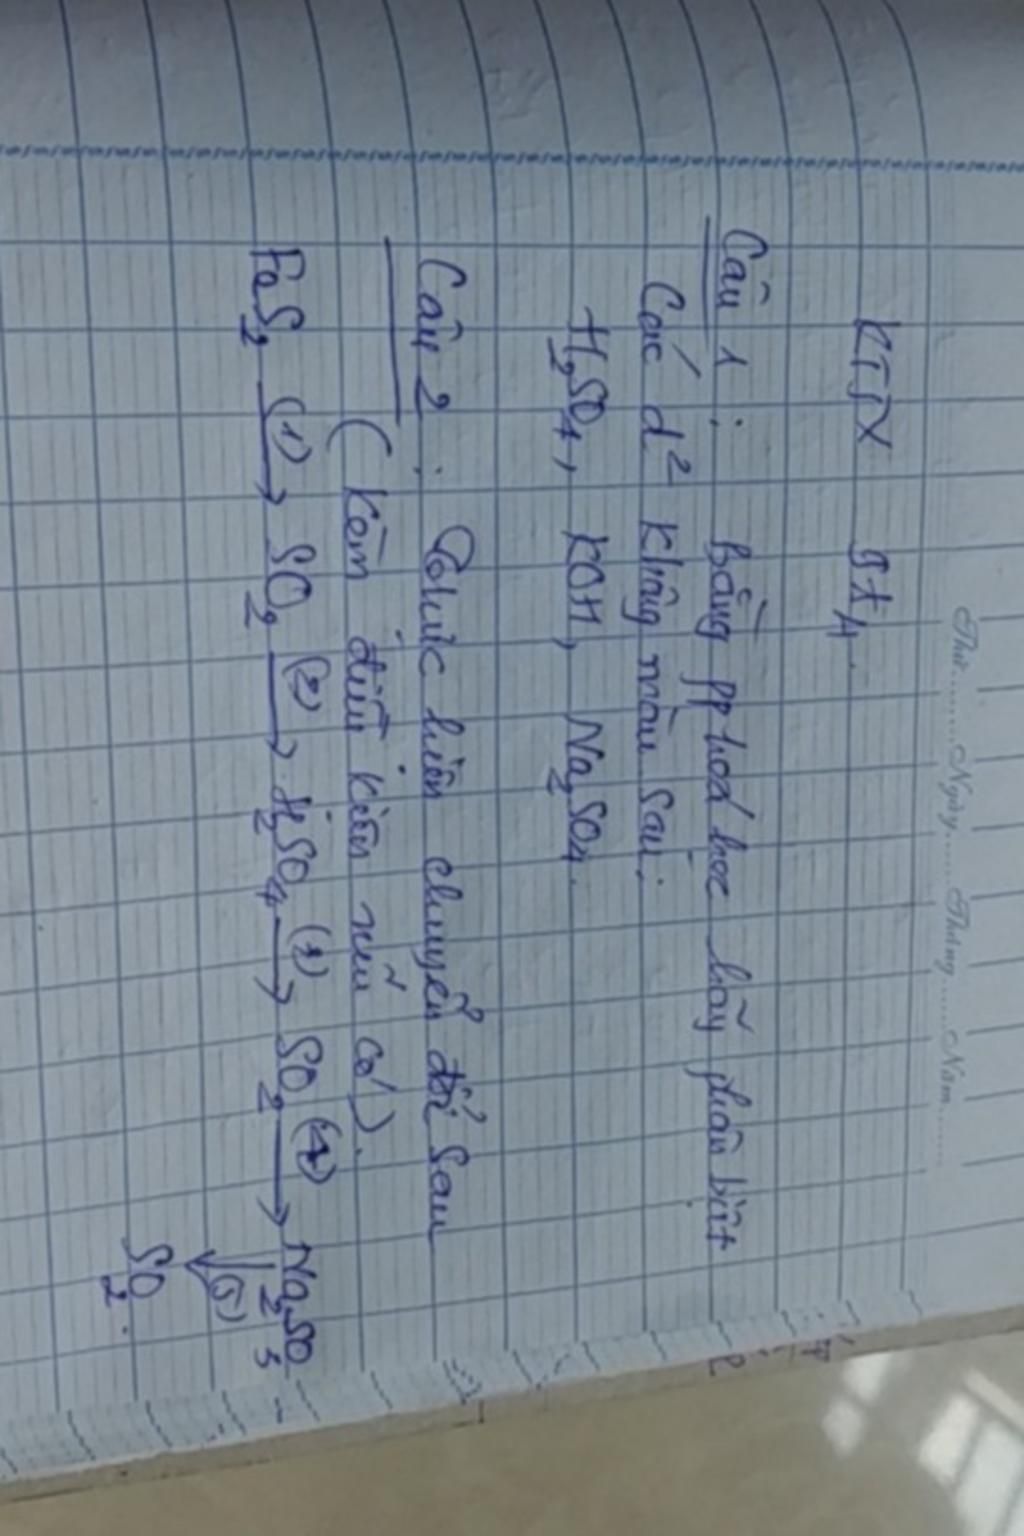 Thứ........Ngày........Tháng........Năm........
KTTX
Câu 1 : Bằng pp hoá học hãy phân biệt
Các d² không màu sau:
H₂SO₄, KOH, Na₂SO₄.
Câu 2 : Thực hiện chuyển đổi sau
( kèm điều kiện nếu có ).
FeS₂ (1)→ SO₂ (2)→ H₂SO₄ (3)→ SO₂ (4)→ Na₂SO₃
↓(5)
SO₂.